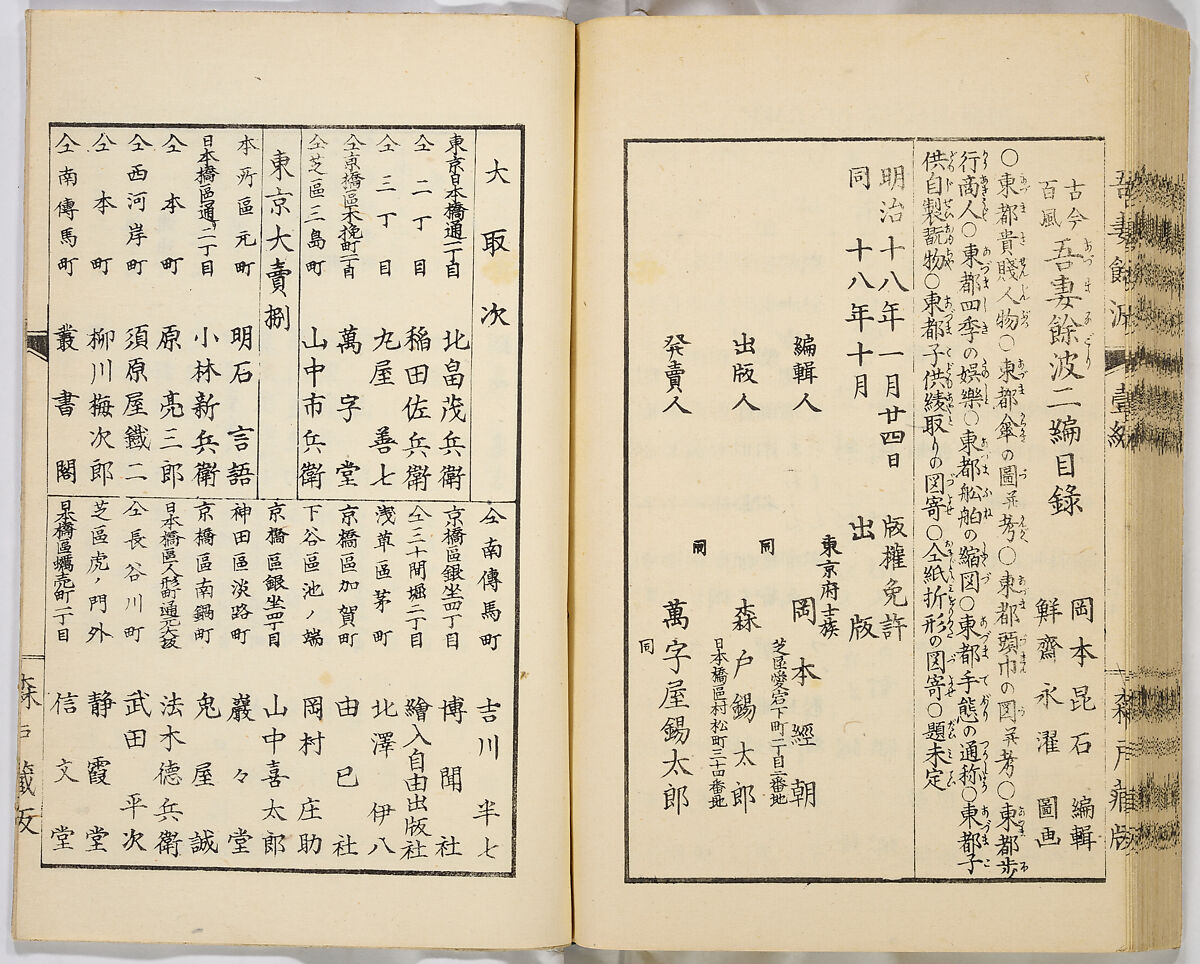 吾妻餘波 壹編
森戸藏版
古今百風 吾妻餘波二編目錄
岡本昆石 編輯
鮮齋永濯 圖画
○東都貴賤人物○東都傘の圖并考○東都頭巾の図并考○東都歩
行商人○東都四季の娯樂○東都舩舶の縮図○東都手態の通称○東都子
供自製翫物○東都子供績取りの図寄○仝紙折形の図寄○題未定
明治十八年一月廿四日 版權免許
同 十八年十月 出版
東京府士族
編輯人 岡本經朝
芝區愛宕下町二丁目三番地
出版人 同 森戸錫太郎
日本橋區村松町三十四番地
発賣人 同 萬字屋錫太郎
同
大取次
東京日本橋通一丁目 北畠茂兵衛
仝 二丁目 稲田佐兵衛
仝 三丁目 丸屋善七
仝京橋區木挽町二丁目 萬字堂
仝芝區三島町 山中市兵衛
東京大賣捌
本所區元町 明石言語
日本橋區通二丁目 小林新兵衛
仝 本町 原亮三郎
仝西河岸町 須原屋鐵二
仝 本町 柳川梅次郎
仝南傳馬町 叢書閣
仝南傳馬町 吉川半七
京橋區銀坐四丁目 博聞社
仝三十間堀二丁目 繪入自由出版社
浅草區茅町 北澤伊八
京橋區加賀町 由己社
下谷區池ノ端 岡村庄助
京橋區銀坐四丁目 山中喜太郎
神田區淡路町 巖々堂
京橋區南鍋町 兎屋誠
日本橋區人形町通元大坂 法木德兵衛
仝長谷川町 武田平次
芝區虎ノ門外 静霞堂
日本橋區蠣売町二丁目 信文堂
森戸藏版